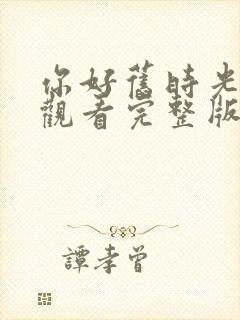 你好舊時光
觀看完整版
譚孝曾